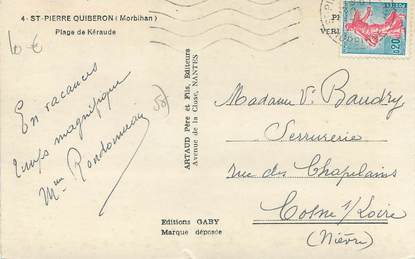 4 - ST-PIERRE QUIBERON (Morbihan)
Plage de Kéraude
10 €
En vacances
temps magnifique
Mme Rondonneau
58
ARTAUD Père et Fils, Editeurs
Avenue de la Close, NANTES
Editions GABY
Marque déposée
PH
VERI
0,20
Madame Ve Baudry
Serrurerie
rue des Chapelains
Cosne s/ Loire
(Nièvre)